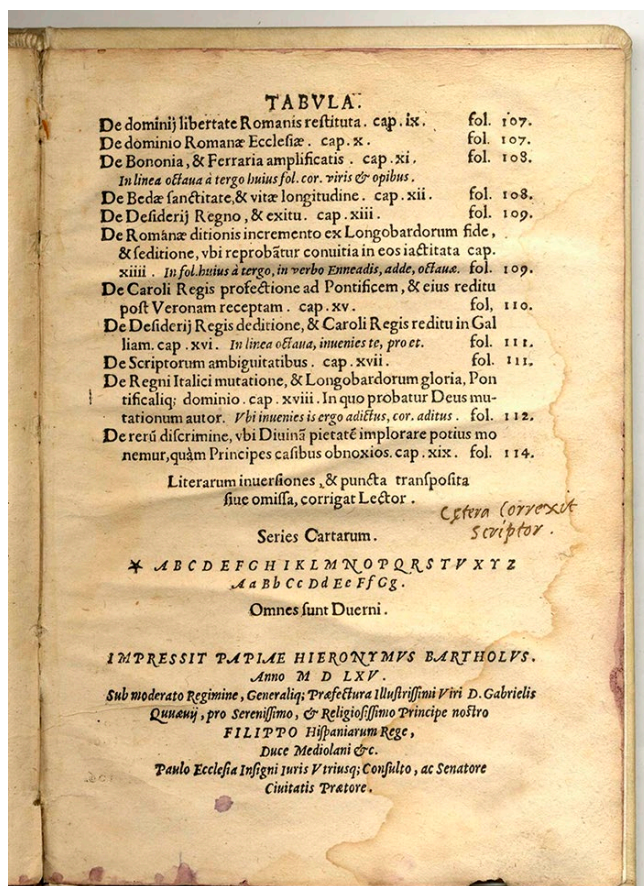 TABVLA.
De dominij libertate Romanis restituta. cap. ix. fol. 107.
De dominio Romanæ Ecclesiæ. cap. x. fol. 107.
De Bononia, & Ferraria amplificatis. cap. xi. fol. 108.
In linea octaua à tergo huius fol. cor. viris & opibus.
De Bedæ sanctitate, & vitæ longitudine. cap. xii. fol. 108.
De Desiderij Regno, & exitu. cap. xiii. fol. 109.
De Romanæ ditionis incremento ex Longobardorum fide,
& seditione, vbi reprobātur conuitia in eos iactitata cap.
xiiii. In fol. huius à tergo, in verbo Enneadis, adde, octauæ. fol. 109.
De Caroli Regis profectione ad Pontificem, & eius reditu
post Veronam receptam. cap. xv. fol, 110.
De Desiderij Regis deditione, & Caroli Regis reditu in Gal
liam. cap. xvi. In linea octaua, inuenies te, pro et. fol. 111.
De Scriptorum ambiguitatibus. cap. xvii. fol. 111.
De Regni Italici mutatione, & Longobardorum gloria, Pon
tificaliq; dominio. cap. xviii. In quo probatur Deus mu-
tationum autor. Vbi inuenies is ergo adictus, cor. aditus. fol. 112.
De rerū discrimine, vbi Diuinā pietatē implorare potius mo
nemur, quàm Principes casibus obnoxios. cap. xix. fol. 114.
Literarum inuersiones, & puncta transposita
siue omissa, corrigat Lector.
Cętera Correxit
Scriptor.
Series Cartarum.
★ A B C D E F G H I K L M N O P Q R S T V X Y Z
Aa Bb Cc Dd Ee Ff Gg.
Omnes sunt Duerni.
IMPRESSIT PAPIAE HIERONYMVS BARTHOLVS.
Anno M D LXV.
Sub moderato Regimine, Generaliq; Præfectura Illustrissimi Viri D. Gabrielis
Quuæuij, pro Serenissimo, & Religiosissimo Principe nostro
FILIPPO Hispaniarum Rege,
Duce Mediolani &c.
Paulo Ecclesia Insigni Iuris Vtriusq; Consulto, ac Senatore
Ciuitatis Prætore.